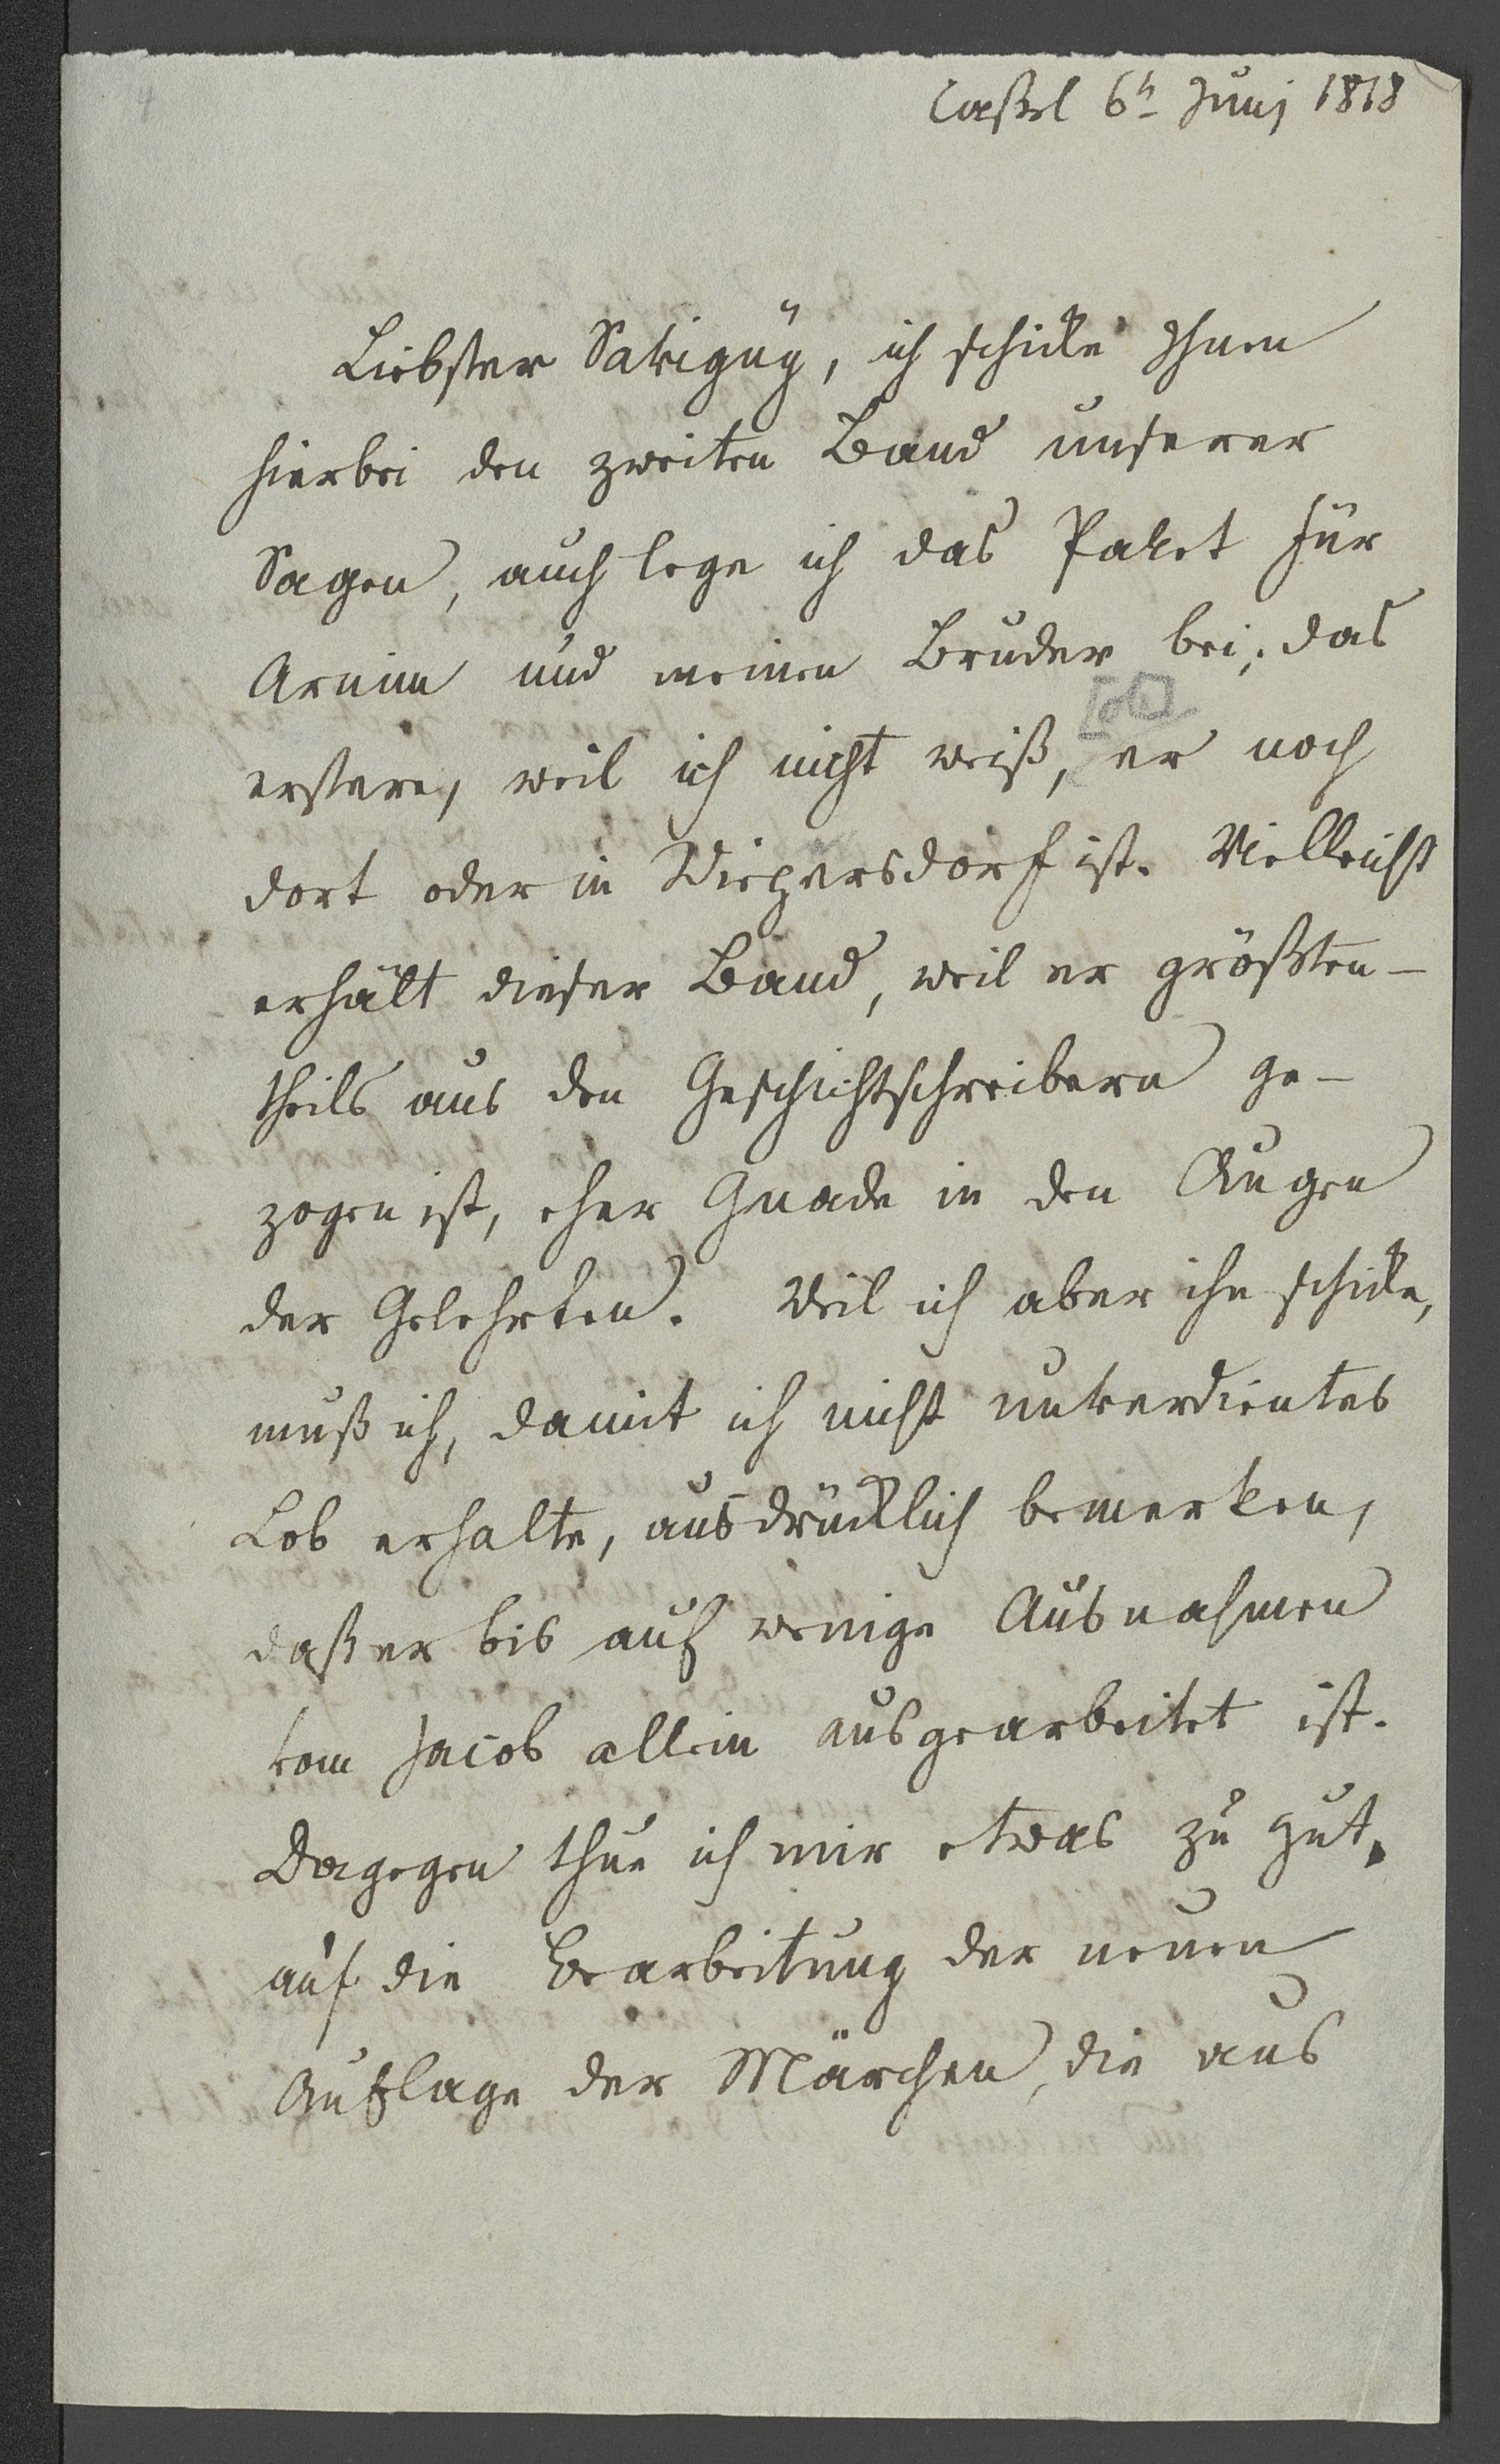 Cassel 6t Juni 1818
Liebster Savigny, ich schicke Ihnen
hierbei den zweiten Band unserer
Sagen, auch lege ich das Paket für
Arnim und meinen Bruder bei; das
[ob]
erstere, weil ich nicht weiß, er noch
dort oder in Wiepersdorf ist. Vielleicht
erhält dieser Band, weil er größten-
theils aus den Geschichtschreibern ge-
zogen ist, eher Gnade in den Augen
der Gelehrten. Weil ich aber ihn schicke,
muß ich, damit ich nicht unverdientes
Lob erhalte, ausdrücklich bemerken,
daß er bis auf wenige Ausnahmen
vom Jacob allein ausgearbeitet ist.
Dagegen thue ich mir etwas zu gut,
auf die Bearbeitung der neuen
Auflage der Märchen, die aus